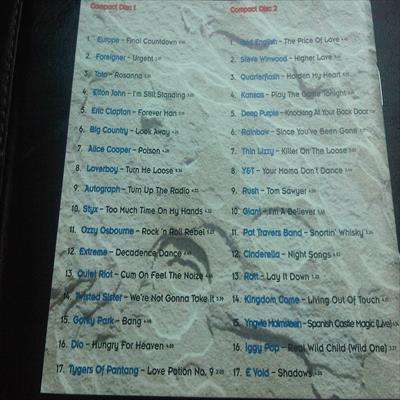 Compact Disc 1
1. Europe - Final Countdown
2. Foreigner - Urgent
3. Toto - Rosanna
4. Elton John - I'm Still Standing
5. Eric Clapton - Forever Man
6. Big Country - Look Away
7. Alice Cooper - Poison
8. Loverboy - Turn Me Loose
9. Autograph - Turn Up The Radio
10. Styx - Too Much Time On My Hands
11. Ozzy Osbourne - Rock 'n Roll Rebel
12. Extreme - Decadence Dance
13. Quiet Riot - Cum On Feel The Noize
14. Twisted Sister - We're Not Gonna Take It
15. Gorky Park - Bang
16. Dio - Hungry For Heaven
17. Tygers Of Pantang - Love Potion No. 9
Compact Disc 2
1. Bad English - The Price Of Love
2. Steve Winwood - Higher Love
3. Quarterflash - Harden My Heart
4. Kansas - Play The Game Tonight
5. Deep Purple - Knocking At Your Back Door
6. Rainbow - Since You've Been Gone
7. Thin Lizzy - Killer On The Loose
8. Y&T - Your Mama Don't Dance
9. Rush - Tom Sawyer
10. Giant - I'm A Believer
11. Pat Travers Band - Snortin' Whisky
12. Cinderella - Night Songs
13. Ratt - Lay It Down
14. Kingdom Come - Living Out Of Touch
15. Yngwie Malmsteen - Spanish Castle Magic (Live)
16. Iggy Pop - Real Wild Child (Wild One)
17. E Void - Shadows